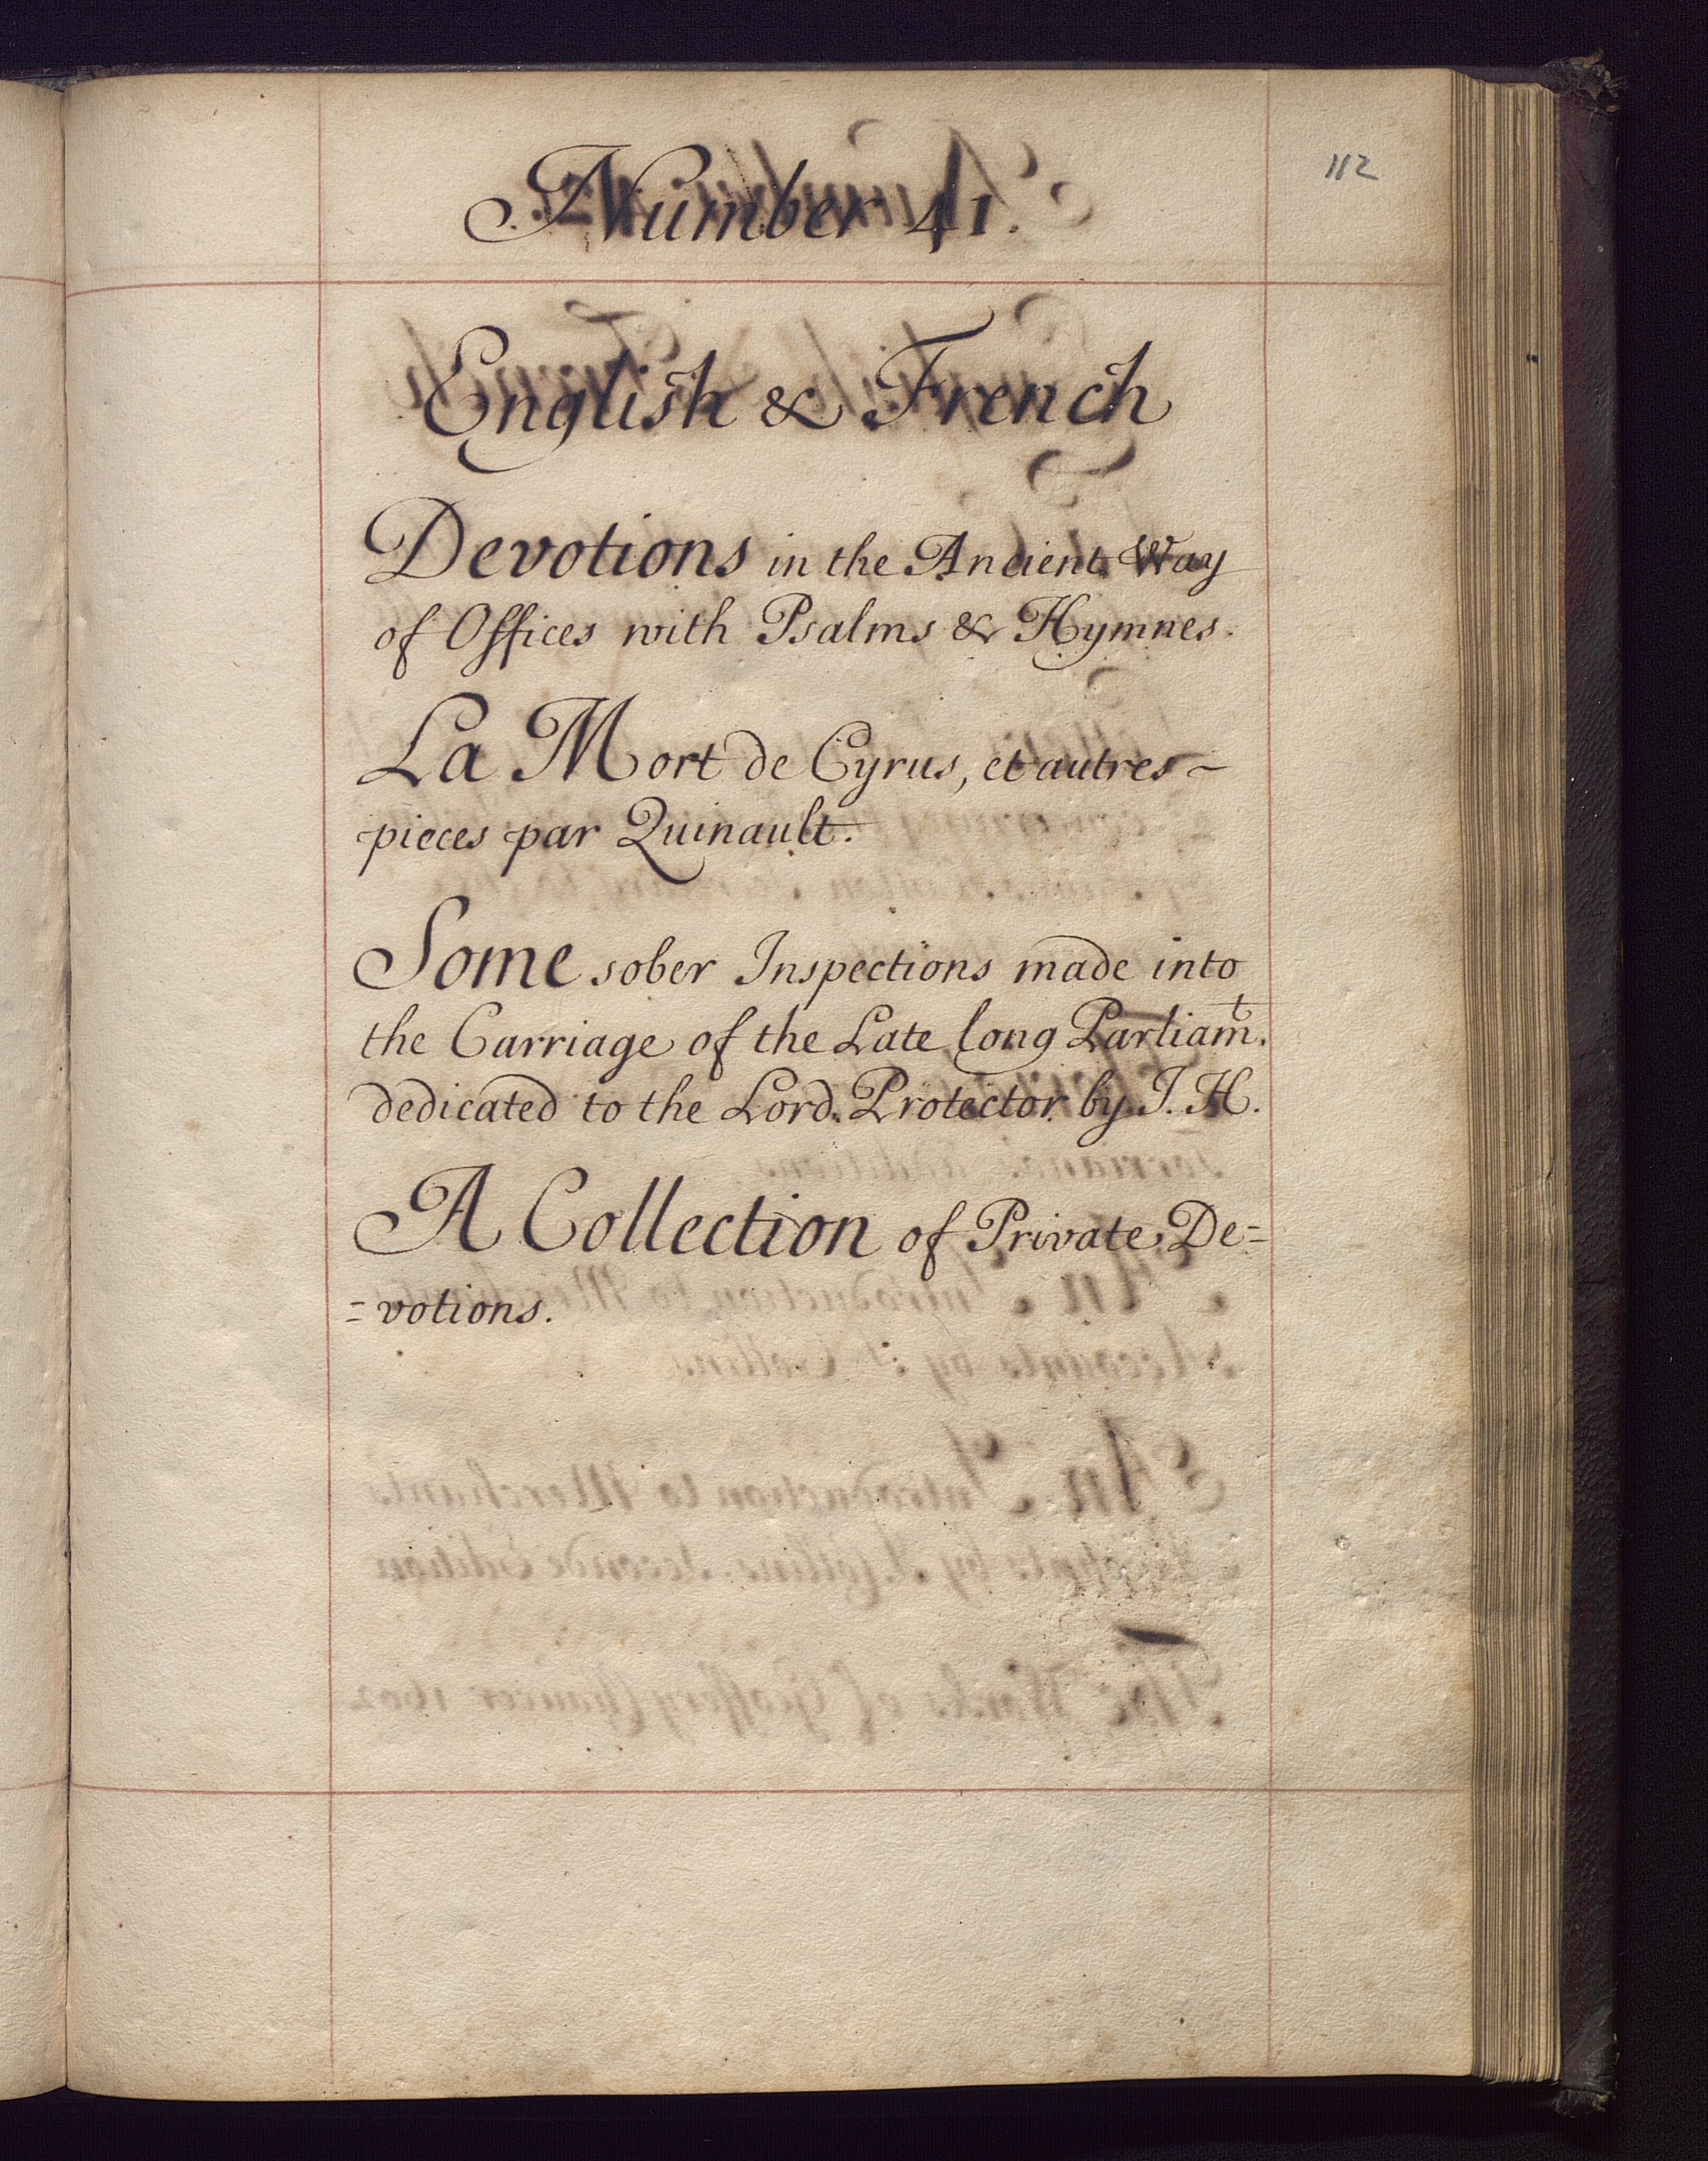 112
Number 41.
English & French
Devotions in the Ancient Way
of Offices with Psalms & Hymnes.
La Mort de Cyrus, et autres
pieces par Quinault.
Some sober Inspections made into
the Carriage of the Late long Parliamt.
dedicated to the Lord Protector by J. H.
A Collection of Private De=
=votions.